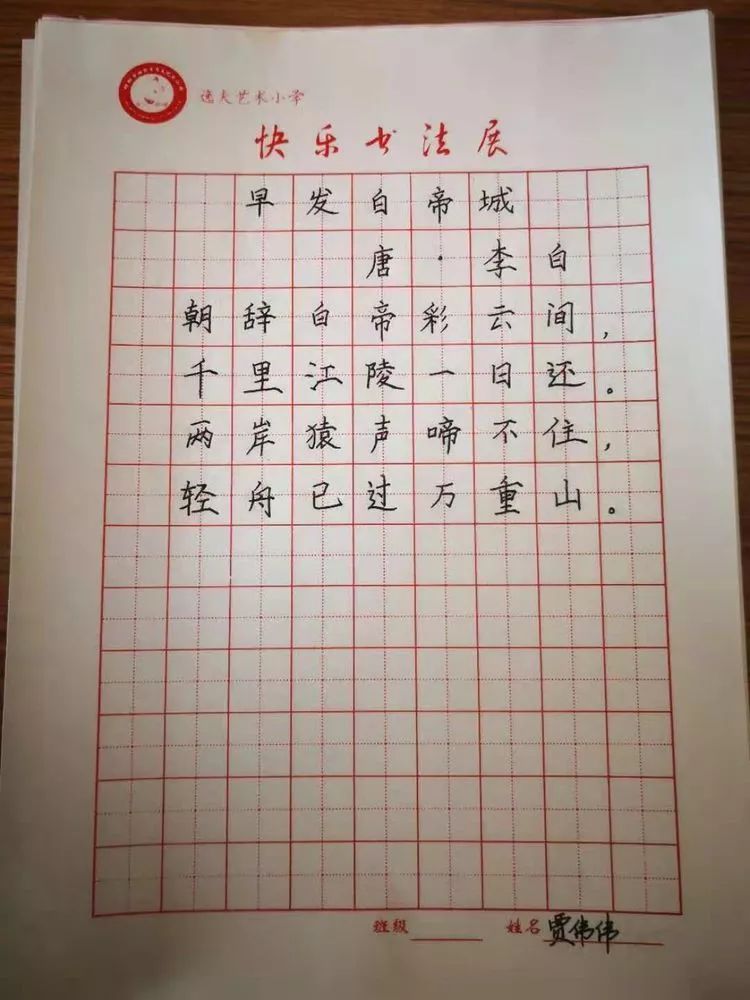 逸夫艺术小学
快乐书法展
早发白帝城
唐·李白
朝辞白帝彩云间,
千里江陵一日还。
两岸猿声啼不住,
轻舟已过万重山。
班级 姓名 贾伟伟